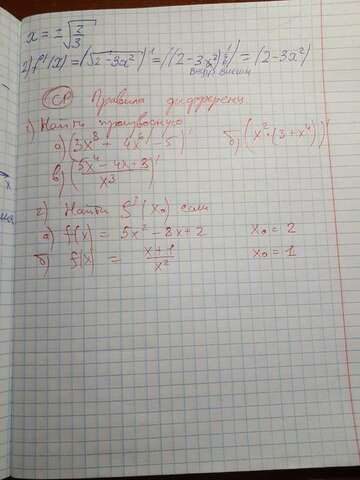 x = ± √(2/3)
2) f'(x) = (√(2-3x²))' = ((2-3x²)^(1/2))' = (2-3x²)
СР Правила дифференц
1) Найти производную
а) (3x⁸ + 4x⁶ - 5)' б) (x² · (3+x⁴))'
в) ((5x⁴ - 4x + 8)/x³)'
2) Найти f'(x₀) если
а) f(x) = 5x² - 8x + 2 x₀ = 2
б) f(x) = (x+1)/x² x₀ = 1